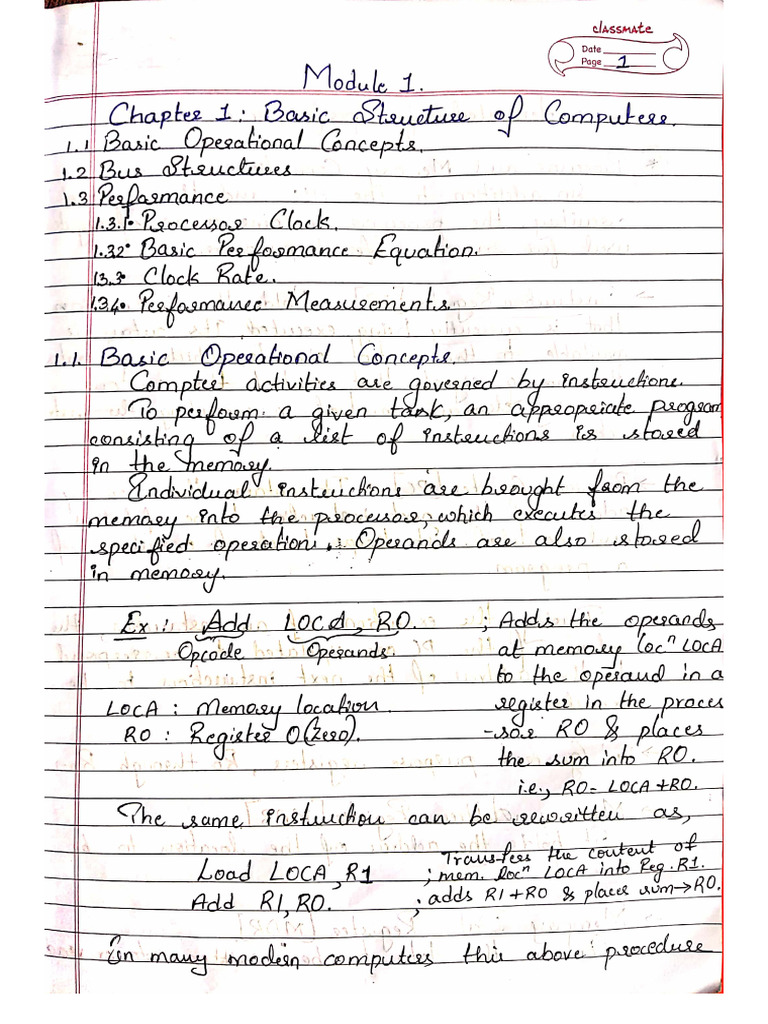 classmate
Date
Page 1
Module 1.
Chapter 1: Basic Structure of Computers.
1.1 Basic Operational Concepts.
1.2 Bus Structures
1.3 Performance
1.3.1• Processor Clock.
1.32• Basic Performance Equation.
13.3• Clock Rate.
1.3.4• Performance Measurements.
1.1. Basic Operational Concepts.
Compter activities are governed by instructions.
To perform a given task, an appropriate program
consisting of a list of instructions is stored
in the memory.
Individual instructions are brought from the
memory into the processor, which executes the
specified operation. Operands are also stored
in memory.
Ex: Add LOCA, R0. ; Adds the operands
Opcode Operands. at memory locⁿ LOCA
to the operand in a
LOCA : Memory location register in the proces
R0 : Register 0 (zero). -sor R0 & places
the sum into R0.
i.e., R0= LOCA+R0.
The same instruction can be rewritten as,
Load LOCA, R1 ; Transfers the content of
mem. locⁿ LOCA into Reg. R1.
Add R1, R0. ; adds R1+R0 & places sum→R0.
In many modern computers this above procedure